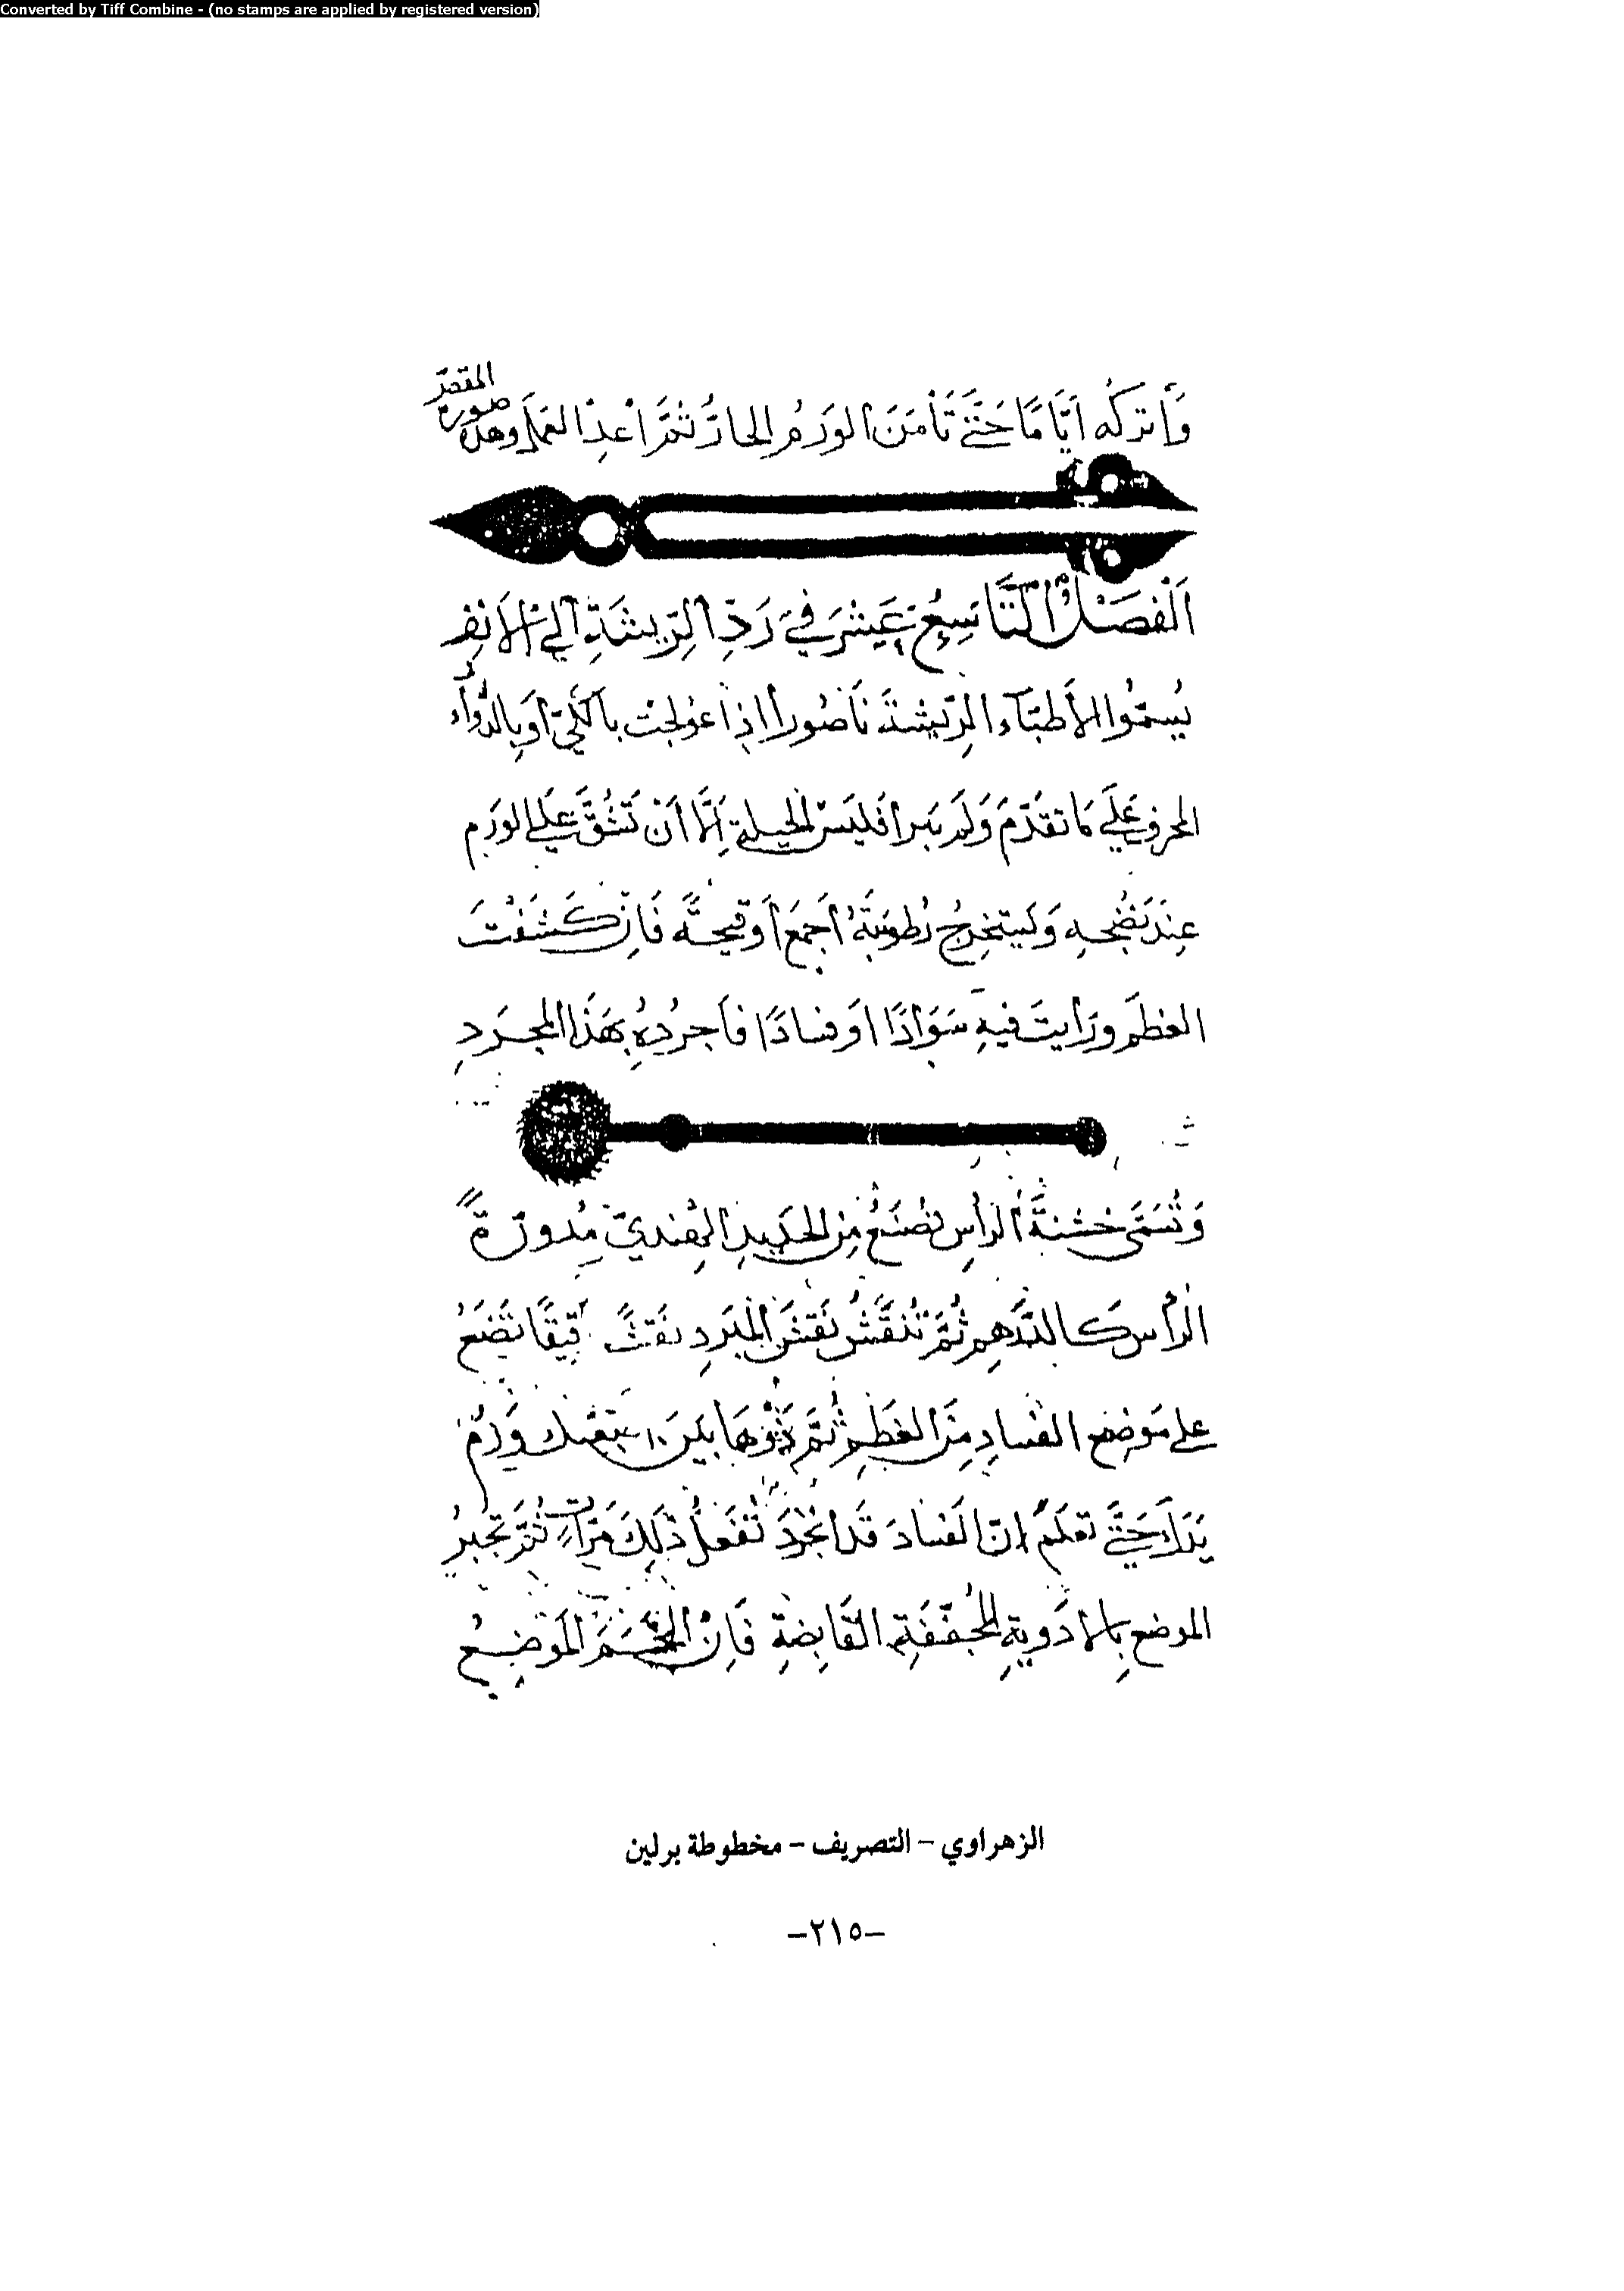 Converted by Tiff Combine - (no stamps are applied by registered version)
المقص
صورة
وَاتركه ايَّامًا حَتَّى تَأمَنَ الورَمُ الحارُّ ثمَّ اعدِ العمَل وهذه
اَلْفَصْلُ التَّاسِعُ عَشَرَ فِي رَدِّ الرِّيشَةِ الَى الاَنْفِ
يُسمّوا الأطبّاء الرّيشَة نَاصُورا اذا عُولجت بالكيّ اوَ بالدَّواء
المحرق علَى مَا تقدّمَ وَلمَ تبرا فليسَ الحيلة اِلَّا اَنْ تَشُقَّ علَى الورَمِ
عِندَ نُضجه وَتستخرجُ رُطوبَتهُ اَجمعَ اَو قيحَهُ فَاِن كَشَفْتَ
العظمَ ورَايتَ فيهِ سَوَادًا اوَ فسادًا فاَجرُدهُ بهَذا المجرَدِ
وَتُسَمَّى خشنةُ الرأسِ تصْنَعُ مِن الحديدِ الهِنديّ مُدورَة
الرأس كالدّرهم ثمَّ تُنقَّشُ نَقشَ المبَردِ نقشًا تضَعُ
على مَوضع الفسادِ منَ العظمِ ثمَّ بينَ وَ
يَدَكَ حَتَّى تعلمَ انّ الفسادَ قد انجَرَدَ تفْعَلُ ذلِكَ مَرّاتٍ ثمَّ تجبرُ
الموضع بالادَويةِ المجفّفَةِ القَابِضةِ فَاِنْ التحَمَ الموَضِع
الزهراوي - التصريف - مخطوطة برلين
-٢١٥-